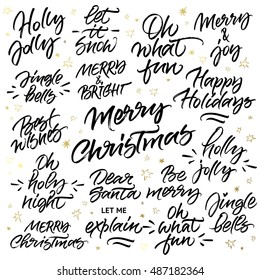 Holly
Jolly
let
it
snow
Oh
what
fun
Merry
&
joy
Jingle
bells
MERRY
&
BRIGHT
Happy
Holidays
Best
wishes
Merry
Christmas
holly
jolly
Oh
holy
night
Dear
Santa
Be
merry
MERRY
Christmas
LET ME
explain
Oh
what
fun
Jingle
bells
487182364